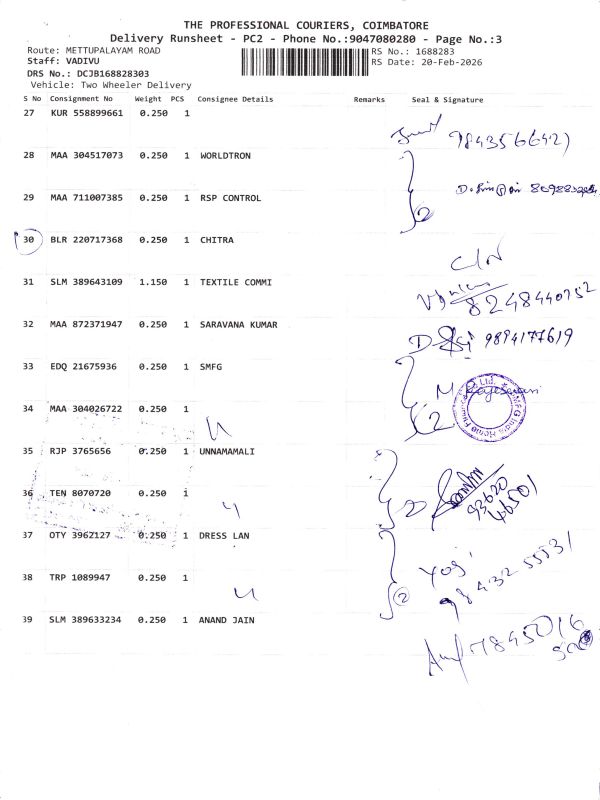 THE PROFESSIONAL COURIERS, COIMBATORE
Delivery Runsheet - PC2 - Phone No.:9047080280 - Page No.:3
Route: METTUPALAYAM ROAD RS No.: 1688283
Staff: VADIVU RS Date: 20-Feb-2026
DRS No.: DCJB168828303
Vehicle: Two Wheeler Delivery
S No Consignment No Weight PCS Consignee Details Remarks Seal & Signature
27 KUR 558899661 0.250 1
9843566427
28 MAA 304517073 0.250 1 WORLDTRON
29 MAA 711007385 0.250 1 RSP CONTROL
2
30 BLR 220717368 0.250 1 CHITRA
C/N
31 SLM 389643109 1.150 1 TEXTILE COMMI
8248440752
32 MAA 872371947 0.250 1 SARAVANA KUMAR
9894177619
33 EDQ 21675936 0.250 1 SMFG
34 MAA 304026722 0.250 1
2
35 RJP 3765656 0.250 1 UNNAMAMALI
36 TEN 8070720 0.250 1
2
93620
46501
37 OTY 3962127 0.250 1 DRESS LAN
Yogi
38 TRP 1089947 0.250 1
2
98432 55531
39 SLM 389633234 0.250 1 ANAND JAIN